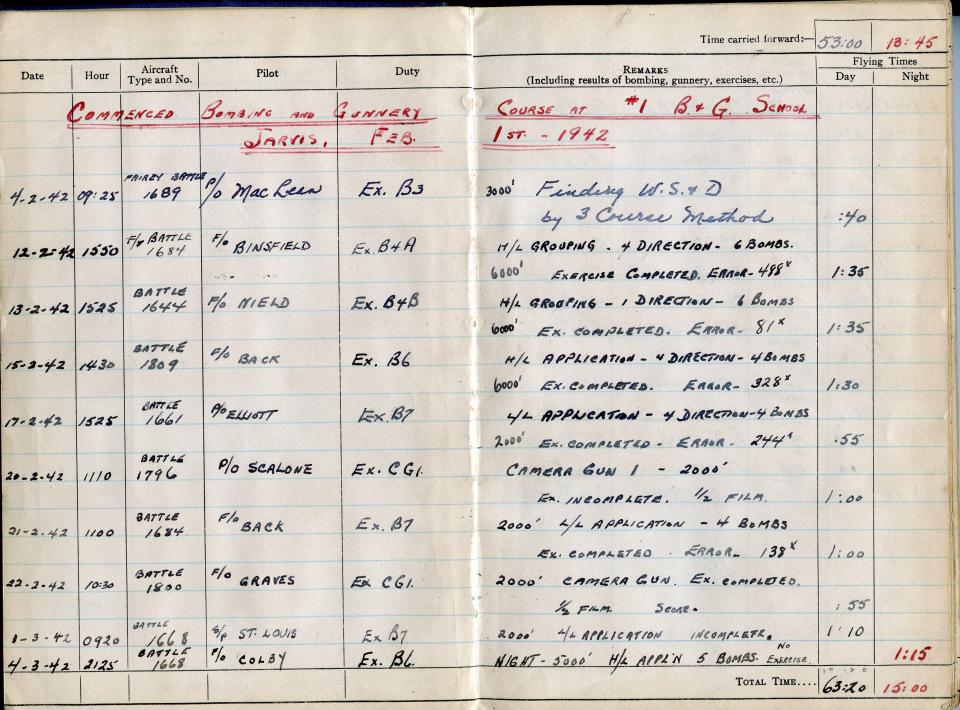 Time carried forward:— 53:00 13:45
Date Hour Aircraft Type and No. Pilot Duty REMARKS (Including results of bombing, gunnery, exercises, etc.) Flying Times Day Night
COMMENCED BOMBING AND GUNNERY COURSE AT #1 B & G. SCHOOL
JARVIS, FEB. 1ST. - 1942
4-2-42 09:25 FAIREY BATTLE 1689 P/O MacLean Ex. B3 3000' Finding W.S. & D
by 3 Course Method :40
12-2-42 1550 F/y BATTLE 1684 F/O BINSFIELD Ex. B4A H/L GROUPING - 4 DIRECTION - 6 BOMBS.
6000' EXERCISE COMPLETED. ERROR - 498x 1:35
13-2-42 1525 BATTLE 1644 F/O NIELD Ex. B4B H/L GROUPING - 1 DIRECTION - 6 BOMBS
6000' EX. COMPLETED. ERROR - 81x 1:35
15-2-42 1430 BATTLE 1809 F/O BACK Ex. B6 H/L APPLICATION - 4 DIRECTION - 4 BOMBS
6000' EX. COMPLETED. ERROR - 328x 1:30
17-2-42 1525 BATTLE 1661 P/O ELLIOTT Ex. B7 L/L APPLICATION - 4 DIRECTION - 4 BOMBS
2000' EX. COMPLETED - ERROR - 244x :55
20-2-42 1110 BATTLE 1796 P/O SCALONE Ex. CG1. CAMERA GUN 1 - 2000'
EX. INCOMPLETE. 1/2 FILM. 1:00
21-2-42 1100 BATTLE 1684 F/O BACK Ex. B7 2000' L/L APPLICATION - 4 BOMBS
EX. COMPLETED. ERROR - 138x 1:00
22-2-42 10:30 BATTLE 1800 F/O GRAVES Ex CG1. 2000' CAMERA GUN. EX. COMPLETED.
FILM SCORE - :55
1-3-42 0920 BATTLE 1668 S/P ST. LOUIS Ex B7 2000' L/L APPLICATION INCOMPLETE. 1:10
4-3-42 2125 BATTLE 1668 F/O COLBY Ex. B6. NIGHT - 5000' H/L APPL'N 5 BOMBS. No EXERCISE. 1:15
TOTAL TIME.... 63:20 15:00